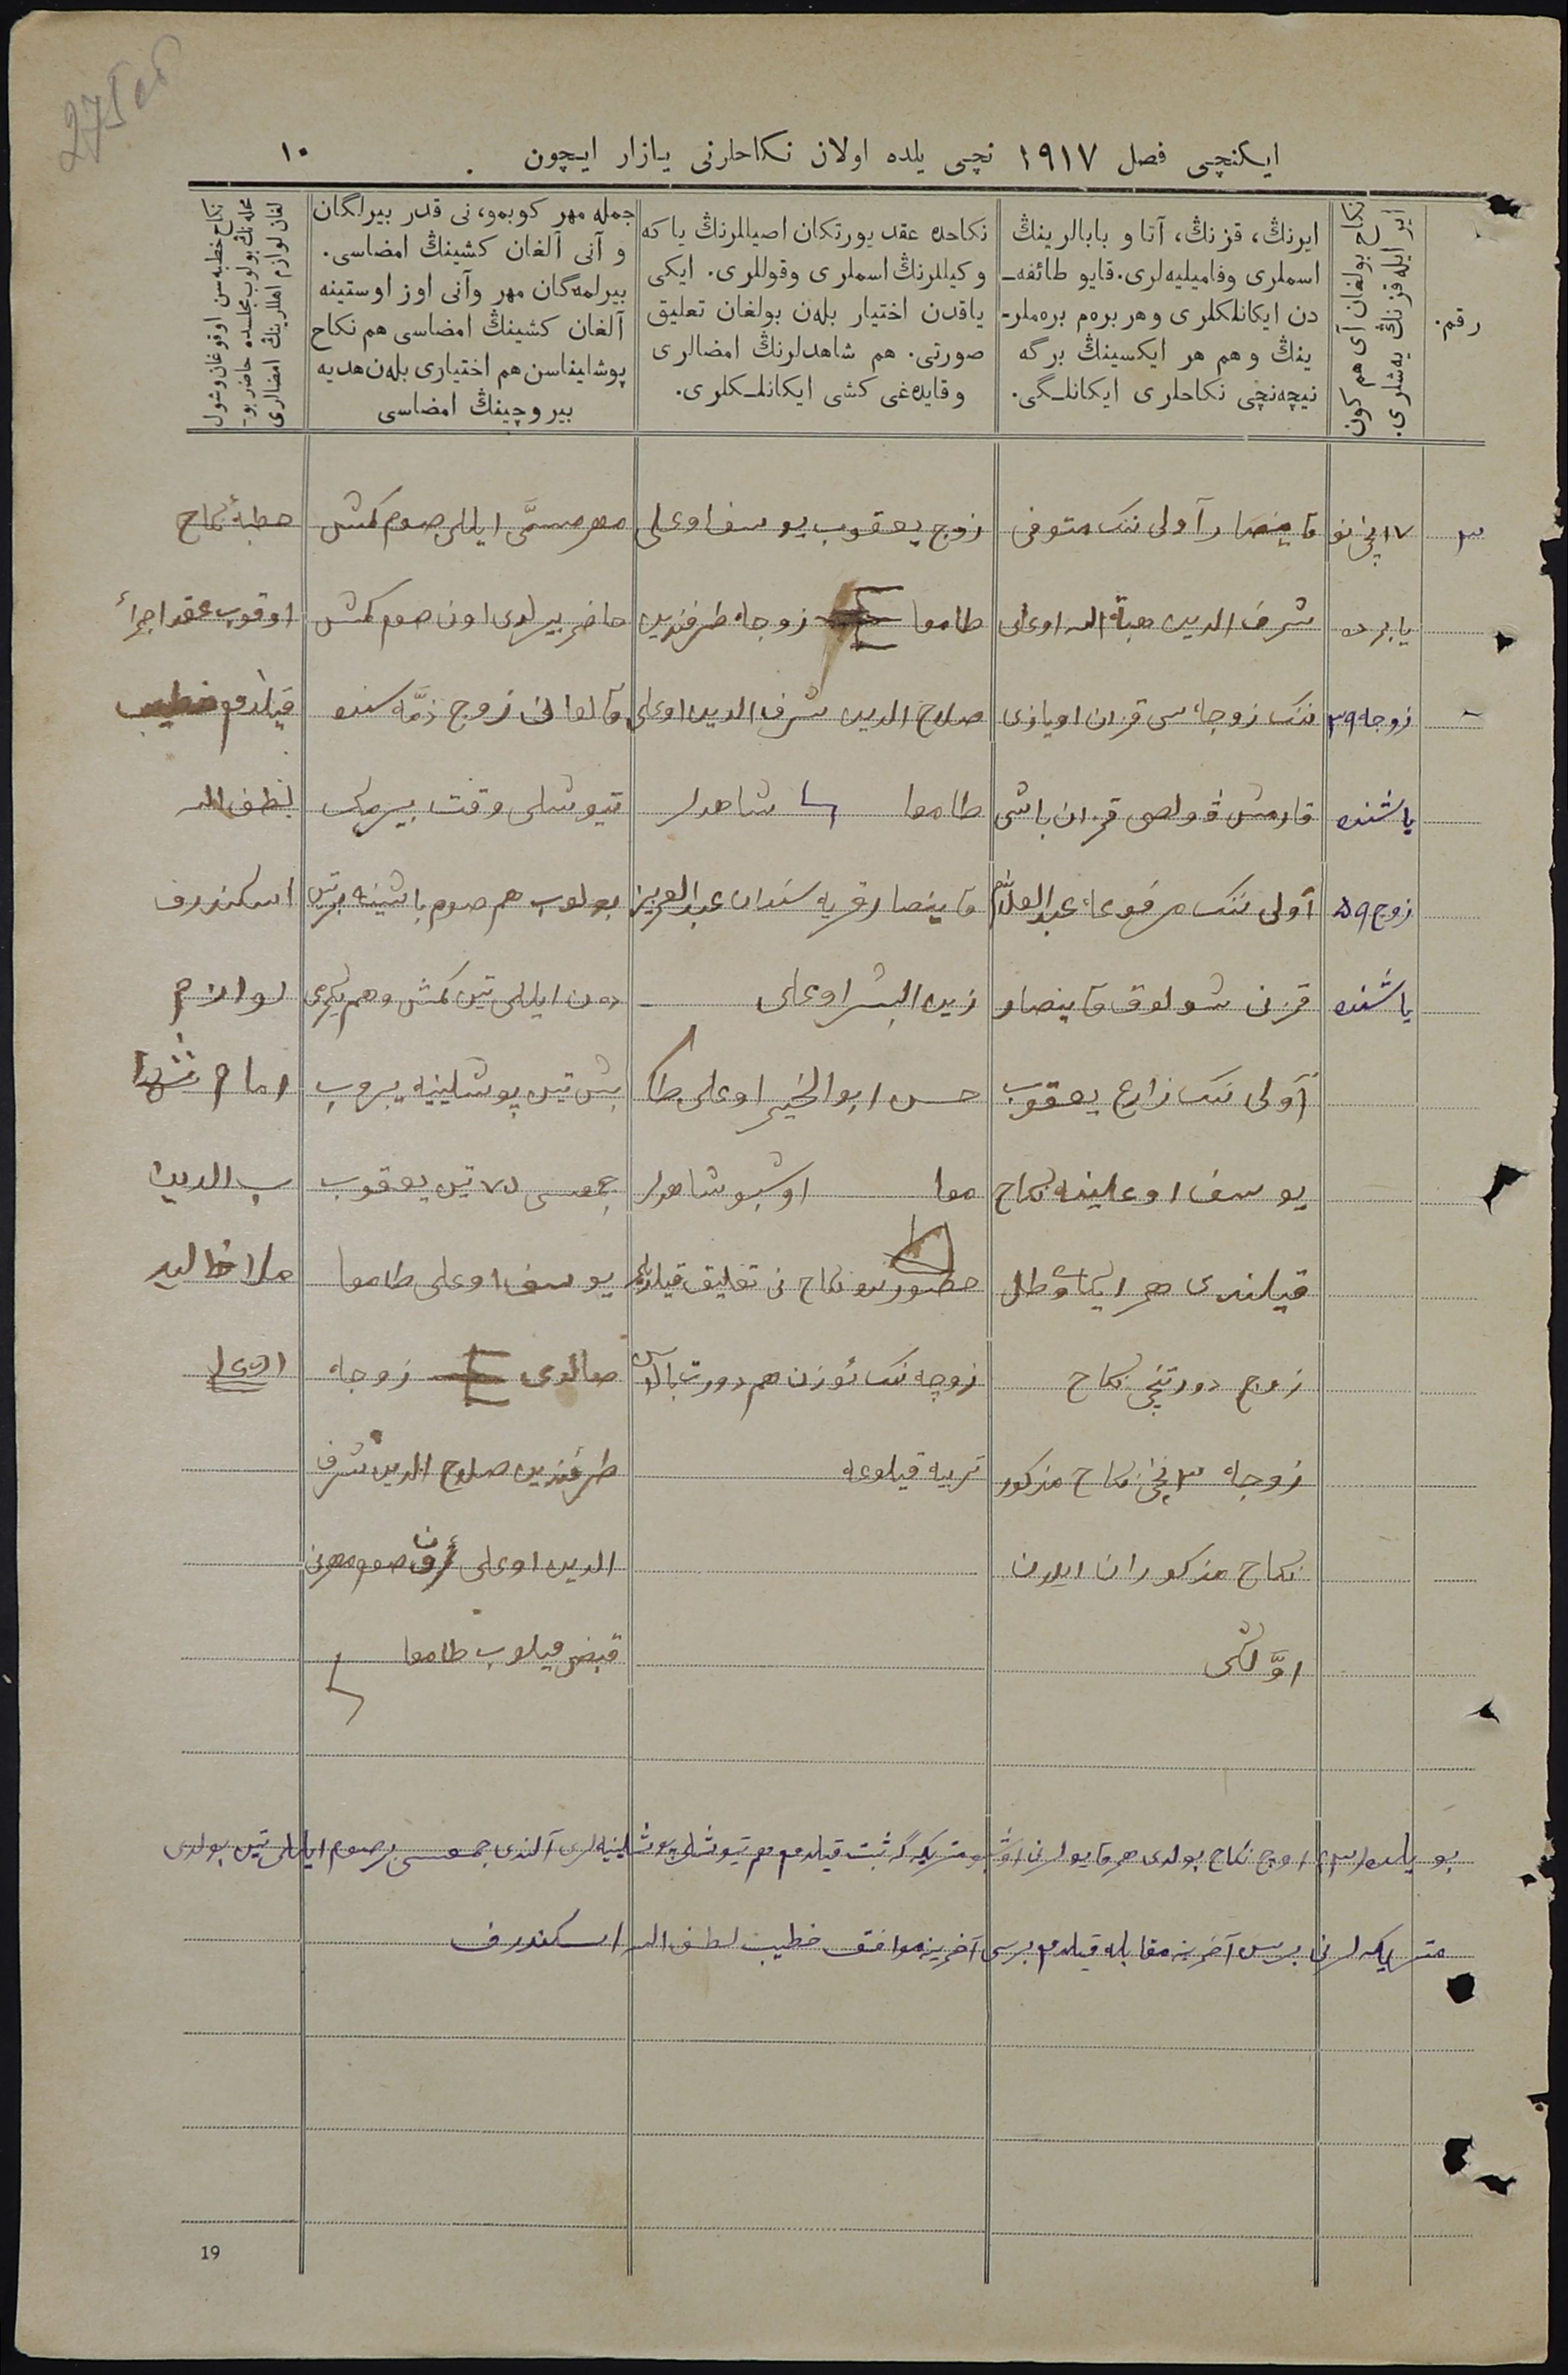 275 об
ایکنچی فصل ۱۹۱۷ نچی یلده اولان نکاحلرنی یازار ایچون
۱۰
رقم.
نکاح بولغان آی هم کون
ایر ایله قزنڭ یه‌شلری.
ایرنڭ، قزنڭ، آتا و بابالرینڭ
اسملری وفامیلیه‌لری. قایو طائفه‌ـ
دن ایکانلکلری و هر بره‌م بره‌ملرـ
ینڭ و هم هر ایکسینڭ برگه
نیچه‌نچی نکاحلری ایکانلـگی.
نکاحده عقد یورتکان اصیللرنڭ یا که
و کیللرنڭ اسملری وقوللری. ایکی
یاقدن اختیار بله‌ن بولغان تعلیق
صورتی. هم شاهدلرنڭ امضالری
و قایده‌غی کشی ایکانلـکلری.
جمله مهر کوبمو، نی قدر بیرلگان
و آنی آلغان کشینڭ امضاسی.
بیرلمه‌گان مهر وآنی اوز اوستینه
آلغان کشینڭ امضاسی هم نکاح
پوشلیناسن هم اختیاری بله‌ن هدیه
بیروچینڭ امضاسی
نکاح خطبه‌سن اوقوغان وشول
محله‌نڭ بولوب مجلسده حاضر بوـ
لغان لوازم اهللرینڭ امضالری
۳
۱۷ انچی
یابرده
زوجه ۳۹
یاشنده
زوج ۵۹
یاشنده
قاینصار آولی ننک متوفی
شرف الدین هبة الله اوغلی
ننک زوجه‌سی قزان اویازی
قارمش ڤولصی قزان باشی
آولی ننک مرفوعه عبدالعلام
قزنی شولوق قاینصار
آولی ننک زارع یعقوب
یوسف اوغلینه نکاح
قیلندی هر
زوج دورتنچی نکاح
زوجه ۳ انچی نکاح مذکور
نکاح مذکوران ایلدن
اوّلگی
زوج یعقوب یوسف اوغلی
طامغا زوجه طرفندین
صلاح الدین شرف الدین اوغلی
طامغا شاهدلر
قاینصار قریه سندان عبد العزیز
زین البشر اوغلی
حسن ابو الخیر اوغلی طا
مغا اوشبو شاهدلر
حضورنده نکاح نی تعلیق قیلدیلر
زوجه ننک ئوزن هم دورت بالاسن
تربیه قیلوغه
مهر مسمّی ایللی صوم کمش
حاضر بیرلدی اون صوم کمش
قالغانی زوج ذمّه سنده
تیوشلی وقت بیرمک
بولوب هم صوم باشینه برتین
دن ایللی تین کمش وهم یکرمی
بش تین پوشلینه بیروب
جمعسی ۷۵ تین یعقوب
یوسف اوغلی طامغا
صالدی زوجه
طرفندین صلاح الدین شرف
الدین اوغلی اون صوم مهرنی
قبض قیلوب طامغا
خطبهٔ نکاح
اوقوب عقد اجرأ
قیلدم خطیب
لطف الله
اسکندروف
لوازم
امام شها
ب الدین
ملا خالید
اوغلی
بو یلده ۳ اوچ نکاح بولدی هر قایولرنی اوشبو متریکه گه ثبت قیلدم هم تیوشلی پوشلینه لری آلندی جمعسی بر صوم ایللی تین بولدی
متریکه لرنی برسن آخرینه مقابله قیلدم برسی آخرینه موافق خطیب لطف الله اسکندروف
19